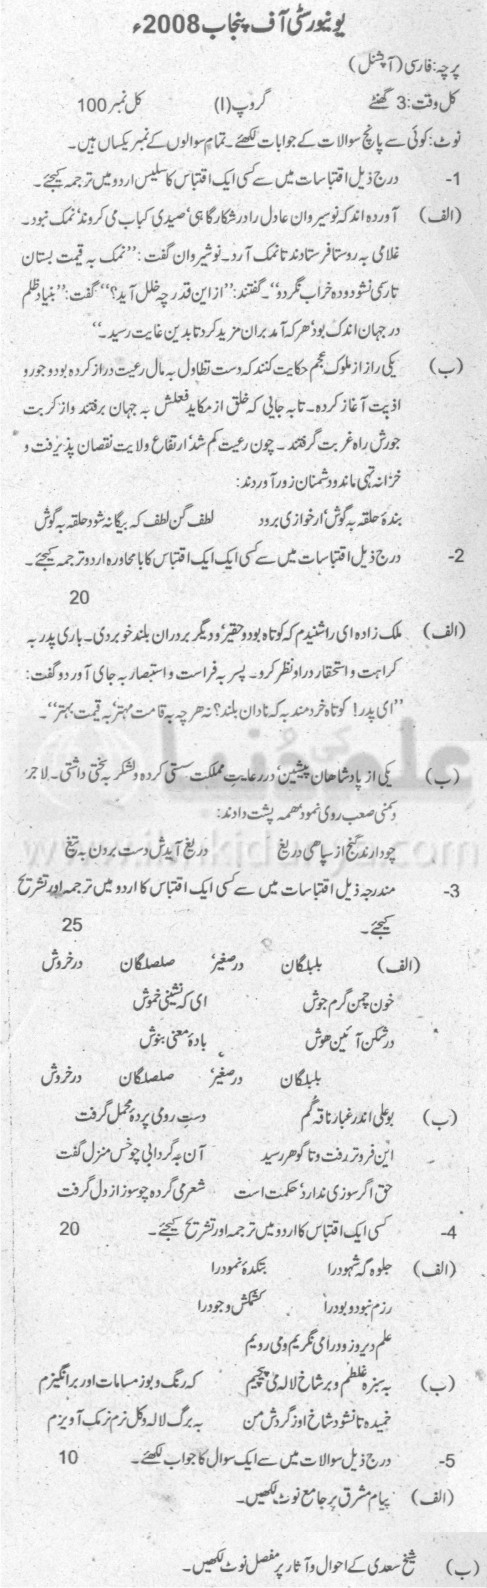 یونیورسٹی آف پنجاب 2008ء
پرچہ: فارسی (آپشنل)
کل وقت: 3 گھنٹے گروپ (I) کل نمبر 100
نوٹ: کوئی سے پانچ سوالات کے جوابات لکھئے۔ تمام سوالوں کے نمبر یکساں ہیں۔
1- درج ذیل اقتباسات میں سے کسی ایک اقتباس کا سلیس اردو میں ترجمہ کیجئے۔
(الف) آوردہ اند کہ نوشیروان عادل را در شکار گاہی' صیدی کباب می کروند' نمک نبود۔
غلامی بہ روستا فرستادند تا نمک آرد۔ نوشیروان گفت: ''نمک بہ قیمت بستان
تارسمی نشود و دہ خراب نگردو''۔ گفتند: ''از این قدر چہ خلل آید؟'' گفت: ''بنیاد ظلم
در جہان اندک بود' ھر کہ آمد بران مزید کرد تا بدین غایت رسید۔''
(ب) یکی راز از ملوک عجم حکایت کنند کہ دست تطاول بہ مال رعیت دراز کردہ بود و جور و
اذیت آغاز کردہ۔ تا بہ جایی کہ خلق از مکاید فعلش بہ جہان برفتند و از کربت
جورش راہ غربت گرفتند۔ چون رعیت کم شد' ارتفاع ولایت نقصان پذیرفت و
خزانہ تہی ماند و دشمنان زور آوردند:
بندۂ حلقہ بہ گوش' ار نوازی برود لطف کن لطف کہ بیگانہ شود حلقہ بہ گوش
2- درج ذیل اقتباسات میں سے کسی ایک ایک اقتباس کا بامحاورہ اردو ترجمہ کیجئے۔
20
(الف) ملک زادہ ای را شنیدم کہ کوتاہ بود و حقیر' و دیگر بردران بلند خوبردی۔ باری پدر بہ
کراہت و استحقار در او نظر کرو۔ پسر بہ فراست و استبصار بہ جای آورد و گفت:
''ای پدر! کوتاہ خردمند بہ کہ نادان بلند؟ نہ ھرچہ بہ قامت مہتر' بہ قیمت بہتر''۔
(ب) یکی از پادشاھان پیشین' در رعایت مملکت سستی کردہ و لشکر بہ سختی داشتی۔ لاجرَ
دشمنی صعب روی نمود' ھمہ پشت دادند:
چو دارند گنج از سپاھی دریغ دریغ آیدش دست بردن بہ تیغ
3- مندرجہ ذیل اقتباسات میں سے کسی ایک اقتباس کا اردو میں ترجمہ اور تشریح
کیجئے۔ 25
(الف) بلبلگان در صفیر' صلصلگان در خروش
خون چمن گرم جوش ای کہ نشینی خموش
در شکن آئین ھوش بادۂ معنی بنوش
بلبلگان در صفیر' صلصلگان در خروش
(ب) بوعلی اندر غبار ناقہ گم دستِ رومی پردۂ محمل گرفت
این فرو تر رفت و تا گوھر رسید آن بہ گردابی چو خس منزل گفت
حق اگر سوزی ندارد' حکمت است شعر می گردہ چو سوز از دل گرفت
4- کسی ایک اقتباس کا اردو میں ترجمہ اور تشریح کیجئے۔ 20
(الف) جلوہ گہ شہود را بتکدۂ نمود را
رزم نبود و بود را کشمکش وجود را
علم دیروز و در امی نگریم و می رویم
(ب) بہ سبزہ غلطم و بر شاخ لالہ می پیچیم کہ رنگ و بوز مسامات اور برانگیزم
خمیدہ تا نشود شاخ او ز گردش من بہ برگ لالہ و گل نرم نرمک آویزم
5- درج ذیل سوالات میں سے ایک سوال کا جواب لکھئے۔ 10
(الف) پیام مشرق پر جامع نوٹ لکھیں۔
(ب) شیخ سعدی کے احوال و آثار پر مفصل نوٹ لکھیں۔